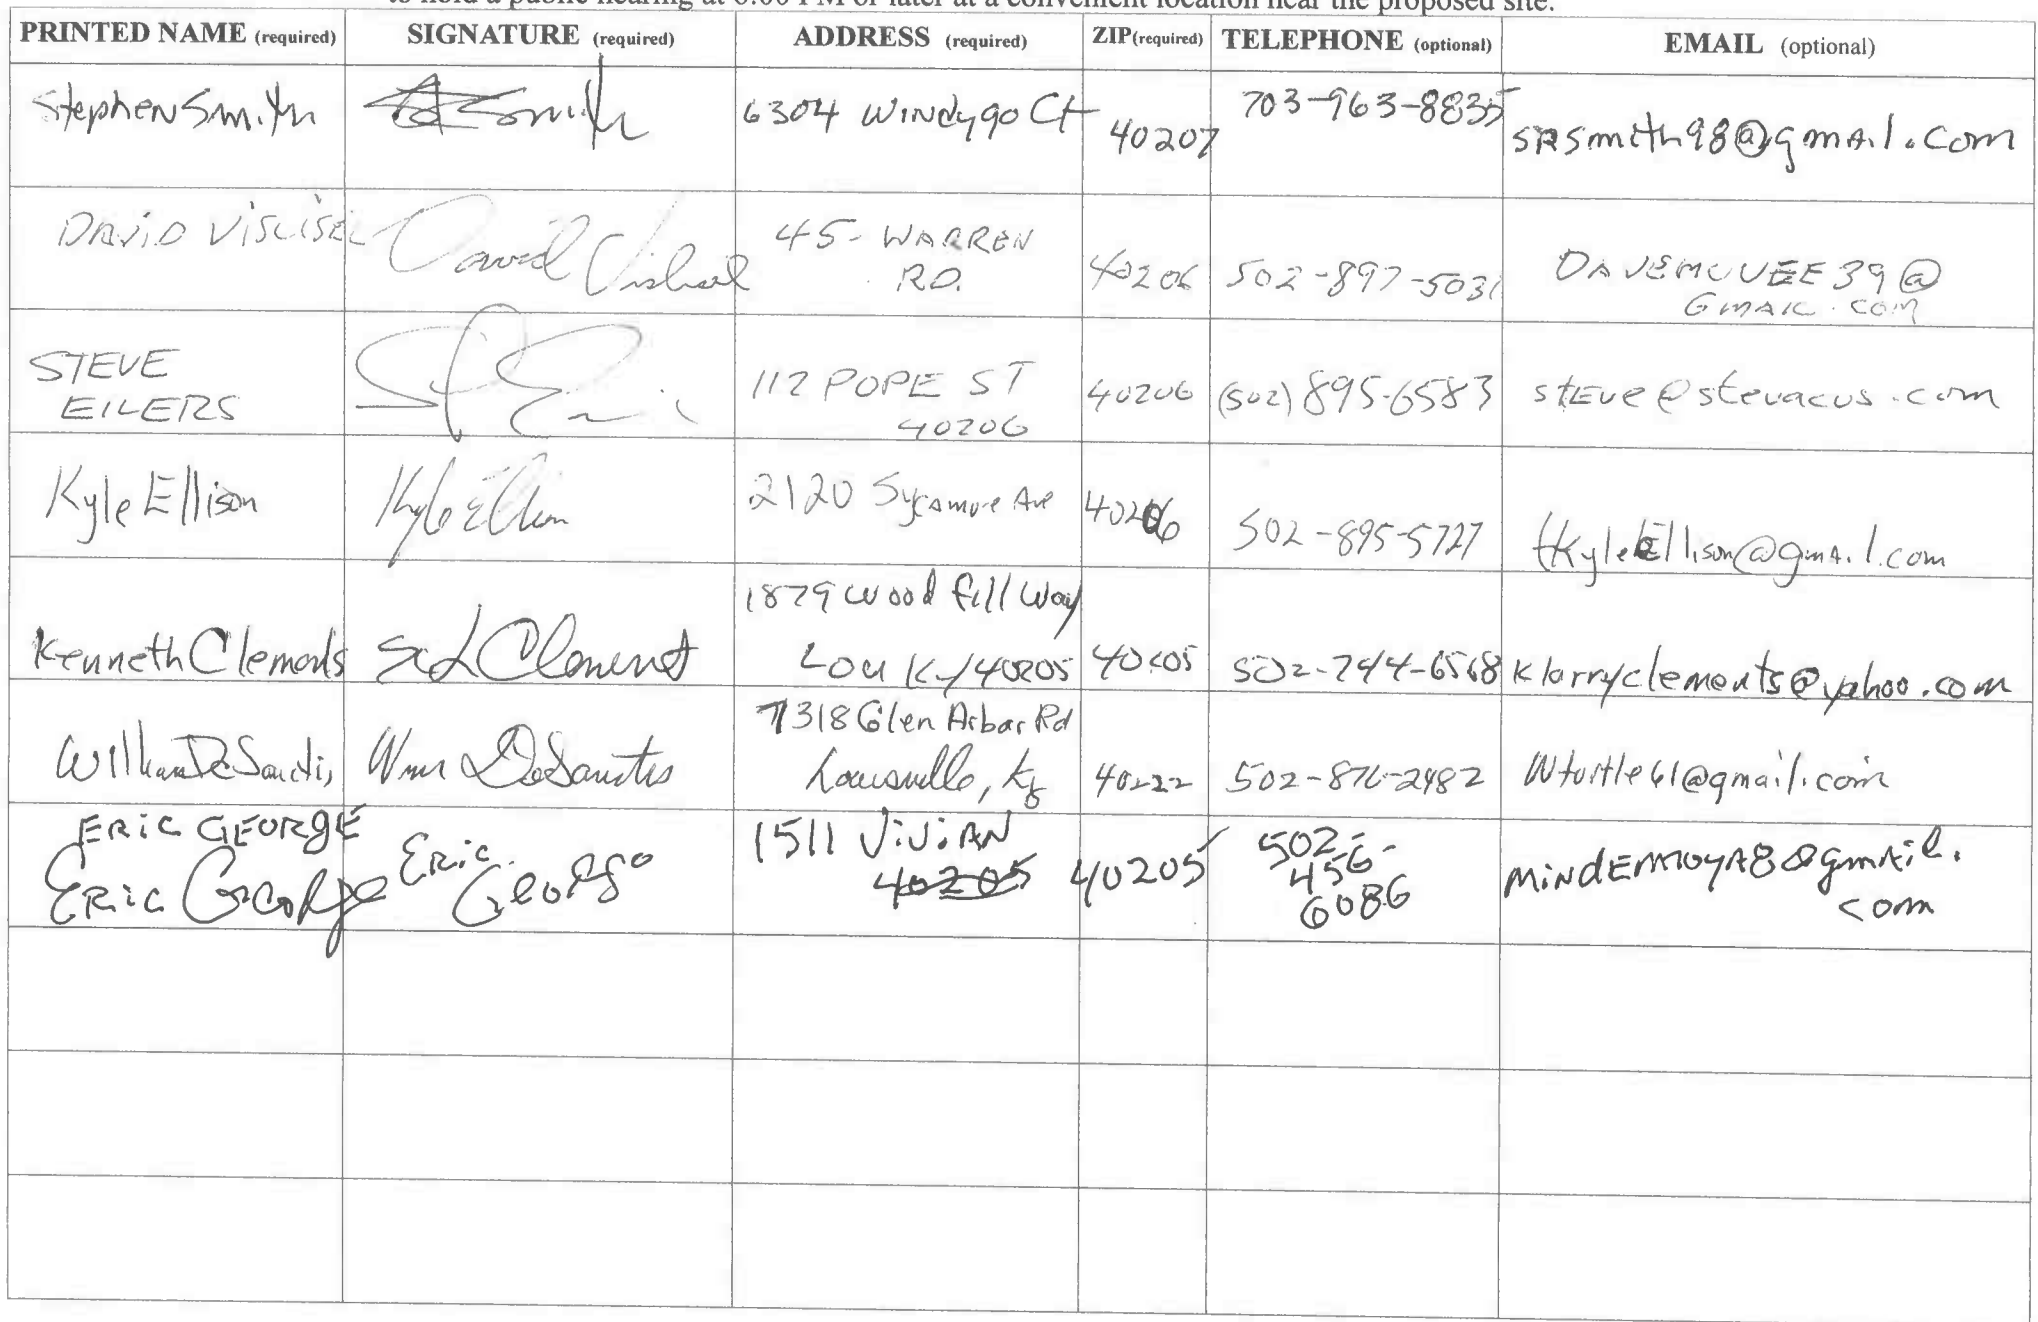 to hold a public hearing at 6:00 PM or later at a convenient location near the proposed site.
PRINTED NAME (required) SIGNATURE (required) ADDRESS (required) ZIP(required) TELEPHONE (optional) EMAIL (optional)
Stephen Smith Smith 6304 Windygo Ct 40207 703-963-8835 SRSmith98@gmail.com
DAVID VISLISEL David Vislisel 45- WARREN RD. 40206 502-897-5031 DAVEMUVEE39@
GMAIL.COM
STEVE EILERS 112 POPE ST 40206 (502) 895-6583 stEve@stevacus.com
40206
Kyle Ellison Kyle Ellison 2120 Sycamore Ave 40206 502-895-5727 tKyleEllison@gmail.com
1879 Woodfill Way
Kenneth Clements Clement Lou Ky 40205 40205 502-744-6568 klarryclements@yahoo.com
7318 Glen Arbor Rd
William DeSantis Wm DeSantis Louisville, Ky 40222 502-876-2482 Wturtle61@gmail.com
ERiC GEORGE 1511 ViViAN 502-
ERiC George ERiC George 40205 40205 456- MiNdEMOYA8@gmAil.
6086 com